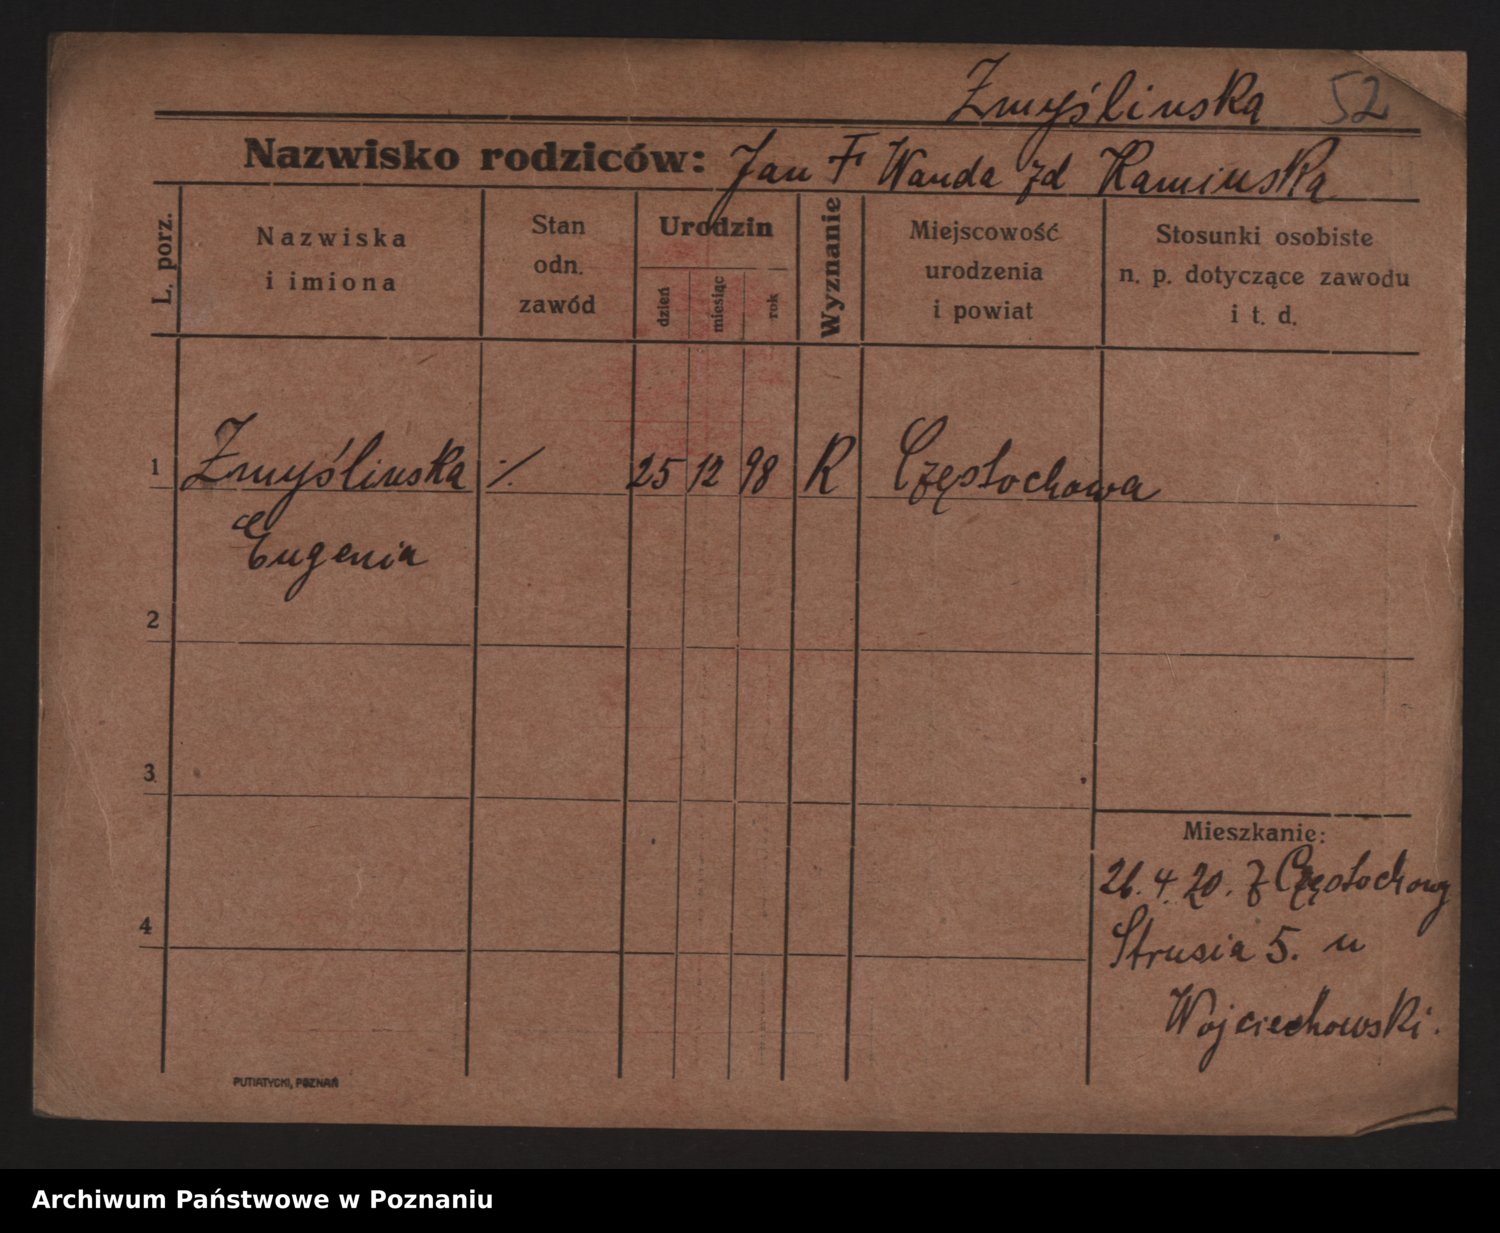 Zmyślinska 52
Nazwisko rodziców: Jan F Wanda zd Kaminska
L. porz.
Nazwiska
i imiona
Stan
odn.
zawód
Urodzin
dzień
miesiąc
rok
Wyznanie
Miejscowość
urodzenia
i powiat
Stosunki osobiste
n. p. dotyczące zawodu
i t. d.
1 Zmyślinska ·/. 25 12 98 R Częstochowa
Eugenia
2
3
Mieszkanie:
26. 4. 20. z Częstochowy
4
Strusia 5. u
Wojciechowski.
PUTIATYCKI, POZNAŃ
Archiwum Państwowe w Poznaniu